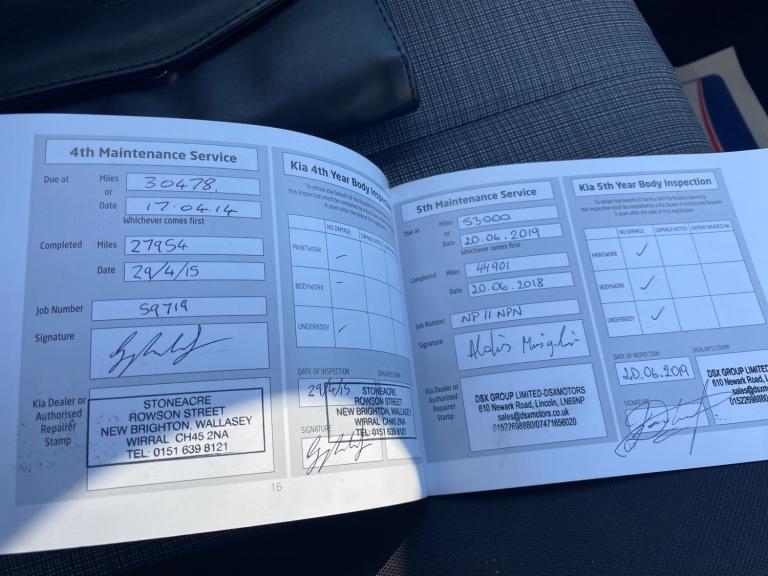 4th Maintenance Service
Due at Miles 30478.
or
Date 17.04.14
Whichever comes first
Completed Miles 27954
Date 29/4/15
Job Number 59719
Signature
Kia Dealer or
Authorised
Repairer
Stamp
STONEACRE
ROWSON STREET
NEW BRIGHTON, WALLASEY
WIRRAL CH45 2NA
TEL: 0151 639 8121
16
Kia 4th Year Body Inspection
To obtain the benefit of the Kia Anti
this inspection must be completed by a Kia
4 years after the date of first
NO DAMAGE DAMAGE NOTED
PAINTWORK
BODYWORK
UNDERBODY
DATE OF INSPECTION DEALER'S STAMP
29/4/15
SIGNATURE
STONEACRE
ROWSON STREET
NEW BRIGHTON, WALLASEY
WIRRAL CH45 2NA
TEL: 0151 639 8121
5th Maintenance Service
Due at Miles 53000
or
Date 20.06.2019
Whichever comes first
Completed Miles 44901
Date 20.06.2018
Job Number NP11 NPN
Signature
Kia Dealer or
Authorised
Repairer
Stamp
DSX GROUP LIMITED-DSXMOTORS
610 Newark Road, Lincoln, LN69NP
sales@dsxmotors.co.uk
01522698880/07471656020
Kia 5th Year Body Inspection
To obtain the benefit of the Kia Anti Perforation Warranty,
this inspection must be completed by a Kia Dealer or Authorised Repairer
5 years after the date of first registration
NO DAMAGE DAMAGE NOTED REPAIR INVOICE No
PAINTWORK ✓
BODYWORK ✓
UNDERBODY ✓
DATE OF INSPECTION DEALER'S STAMP
20.06.2019
SIGNATURE
DSX GROUP LIMITED
610 Newark Road, L
sales@dsxmo
01522698880